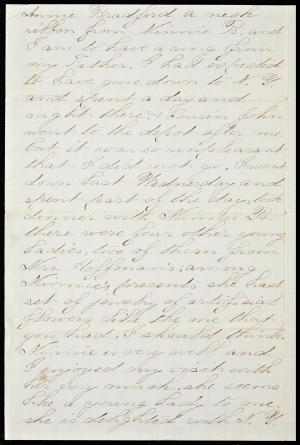 Annie Bradford a neck
ribbon from Minnie B. and
I am to have a ring from
my Father. I had expected
to have gone down to N. Y.
and spent a day and
night there; Cousin John
went to the depot after me
but it was so unpleasant
that I did not go. I went
down last Wednesday and
spent part of the day, took
dinner with Minnie B.
there were four other young
ladies, two of them from
Mrs. Hoffman's; among
Minnie's presents she had
set of jewelry of artificial
flowers like the one that
you had, I should think.
Minnie is very well and
I enjoyed my visit with
her very much, she seems
like a young lady to me,
she is delighted with N. Y.